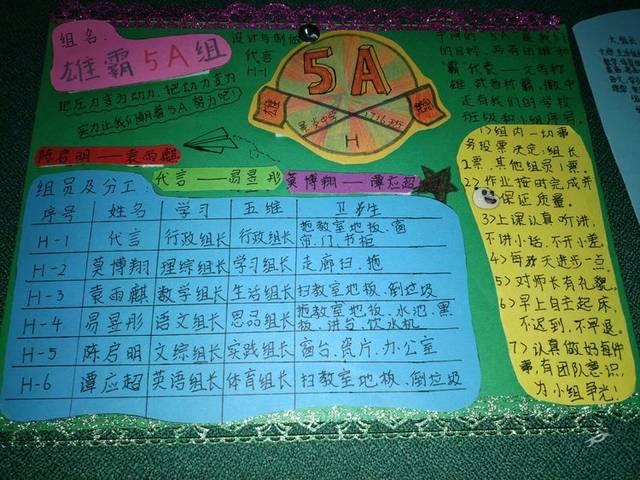 组名:
雄霸5A组
把压力变为动力,把动力变为
实力让我们朝着5A努力吧!
设计与制作
代言
H-1
5A
雄
霸
1716班
H
的目标,
霸"代表
还有我们的学校
班级和小组序号.
陈启明——袁雨麒
代言——易昱彤
莫博翔——谭应超
组员及分工:
序号 姓名 学习 五维 卫生
H-1 代言 行政组长 行政组长 拖教室地板、窗
帘、门、书柜
H-2 莫博翔 理综组长 学习组长 走廊扫、拖
H-3 袁雨麒 数学组长 生活组长 扫教室地板、倒垃圾
H-4 易昱彤 语文组长 思品组长 拖教室地板、水池、黑
板、讲台、饮水机
H-5 陈启明 文综组长 实践组长 窗台、瓷片、办公室
H-6 谭应超 英语组长 体育组长 扫教室地板、倒垃圾
1)组内一切事
务投票决定:组长
2票,其他组员1票.
2)作业按时完成并
保证质量.
3)上课认真听讲,
不讲小话,不开小差.
4)每天进步一点.
5)对师长有礼貌.
6)早上自主起床,
不迟到,不早退.
7)认真做好每件
事,有团队意识,
为小组争光!